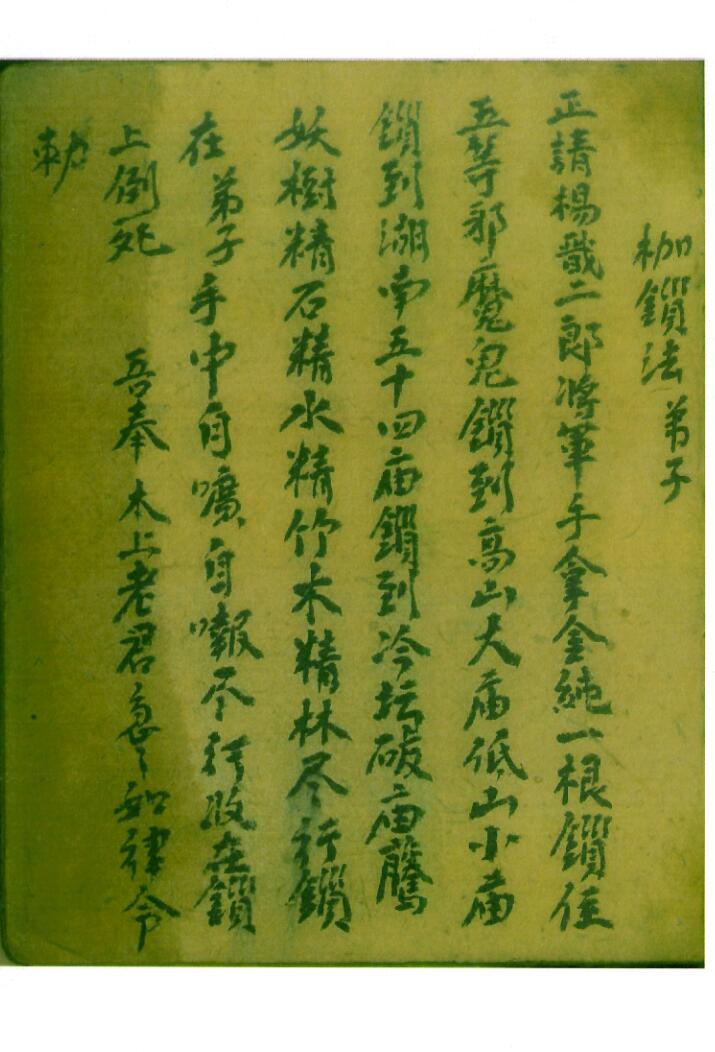 枷鎖法 弟子
正請楊戩二郎將軍手拿金純一根鎖住
五等邪魔鬼鎖到高山大庙低山小庙
鎖到湖南五十四庙鎖到冷坛破庙騰
妖樹精石精水精竹木精林尽行鎖
在弟子手中自嚎自嘲尽行收在鎖
上倒死 吾奉木上老君急々如律令
勅